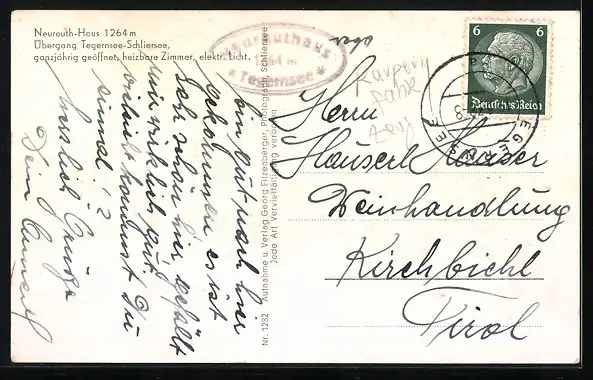 Neureuth-Haus 1264 m
Übergang Tegernsee-Schliersee,
ganzjährig geöffnet, heizbare Zimmer, elektr. Licht.
Neureuthaus
1264 m
* Tegernsee *
6 6
Deutsches Reich
TEGERNSEE
Herrn
Hauser
Weinhandlung
Kirchbichl
Tirol
bin gut nach hier
gekommen es ist
sehr schön hier gefällt
mir wirklich gut
vielleicht kommst Du
einmal?
herzliche Grüße
Dein
Nr. 1282 Aufnahme u. Verlag Georg Eitzenberger, Photograph, Schliersee
Jede Art Vervielfältigung verboten